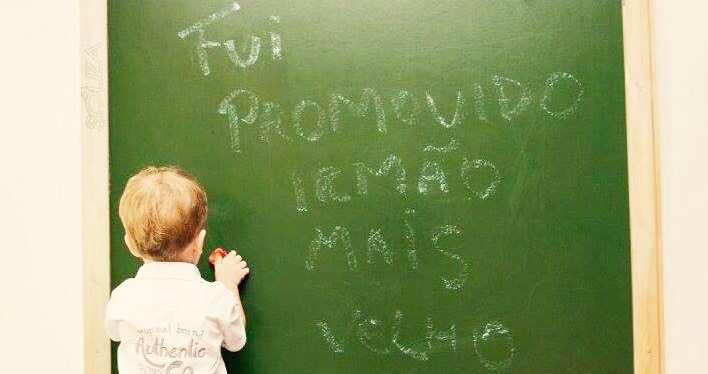 Fui
PROMOVIDO
IRMÃO
MAIS
VELHO
original brand
Authentic
Co
SOUZA